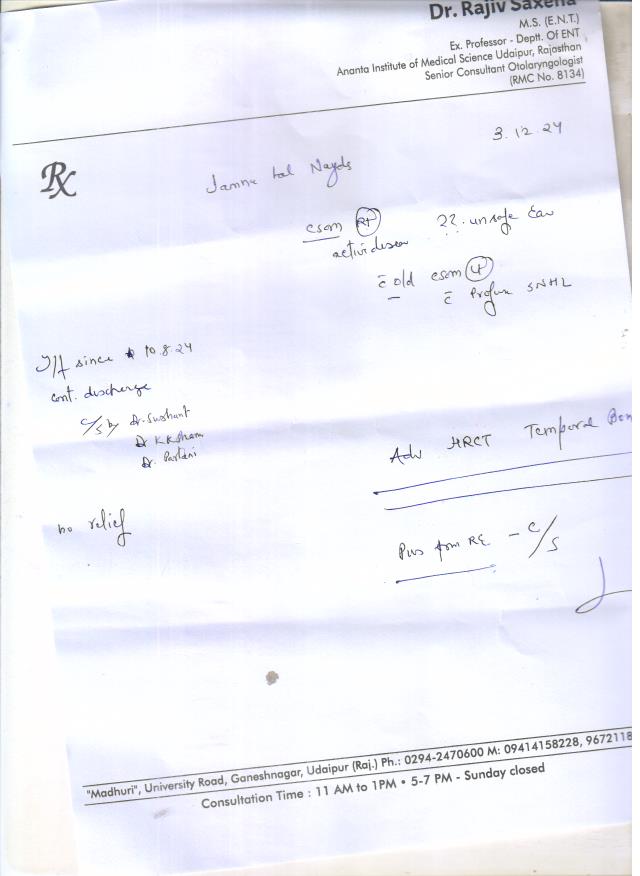 Dr. Rajiv Saxena
M.S. (E.N.T.)
Ex. Professor - Deptt. Of ENT
Ananta Institute of Medical Science Udaipur, Rajasthan
Senior Consultant Otolaryngologist
(RMC No. 8134)
3.12.24
Rx
csom Rt ??. unsafe Ear
c̄ old csom
c̄ SNHL
since 10.8.24
cont. discharge
c/s by Dr. Sushant
Dr
Dr.
no relief
Adv HRCT Temporal Bon
Pus from RE - c/s
"Madhuri", University Road, Ganeshnagar, Udaipur (Raj.) Ph.: 0294-2470600 M: 09414158228, 9672118
Consultation Time : 11 AM to 1PM • 5-7 PM - Sunday closed